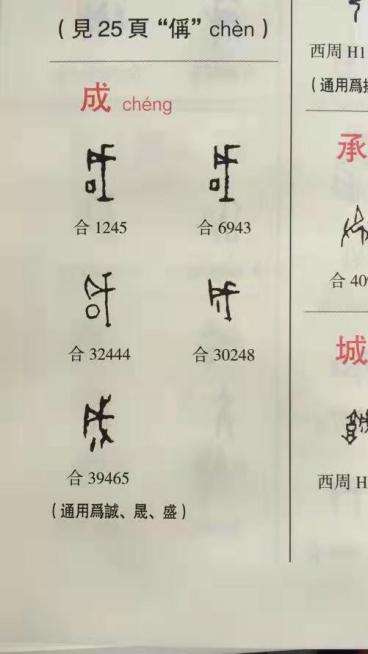 （見 25 頁“偁” chèn ）
成 chéng
合 1245
合 6943
合 32444
合 30248
合 39465
（通用爲誠、晟、盛）
西周 H1
（通用爲
承
合 40
城
西周 H